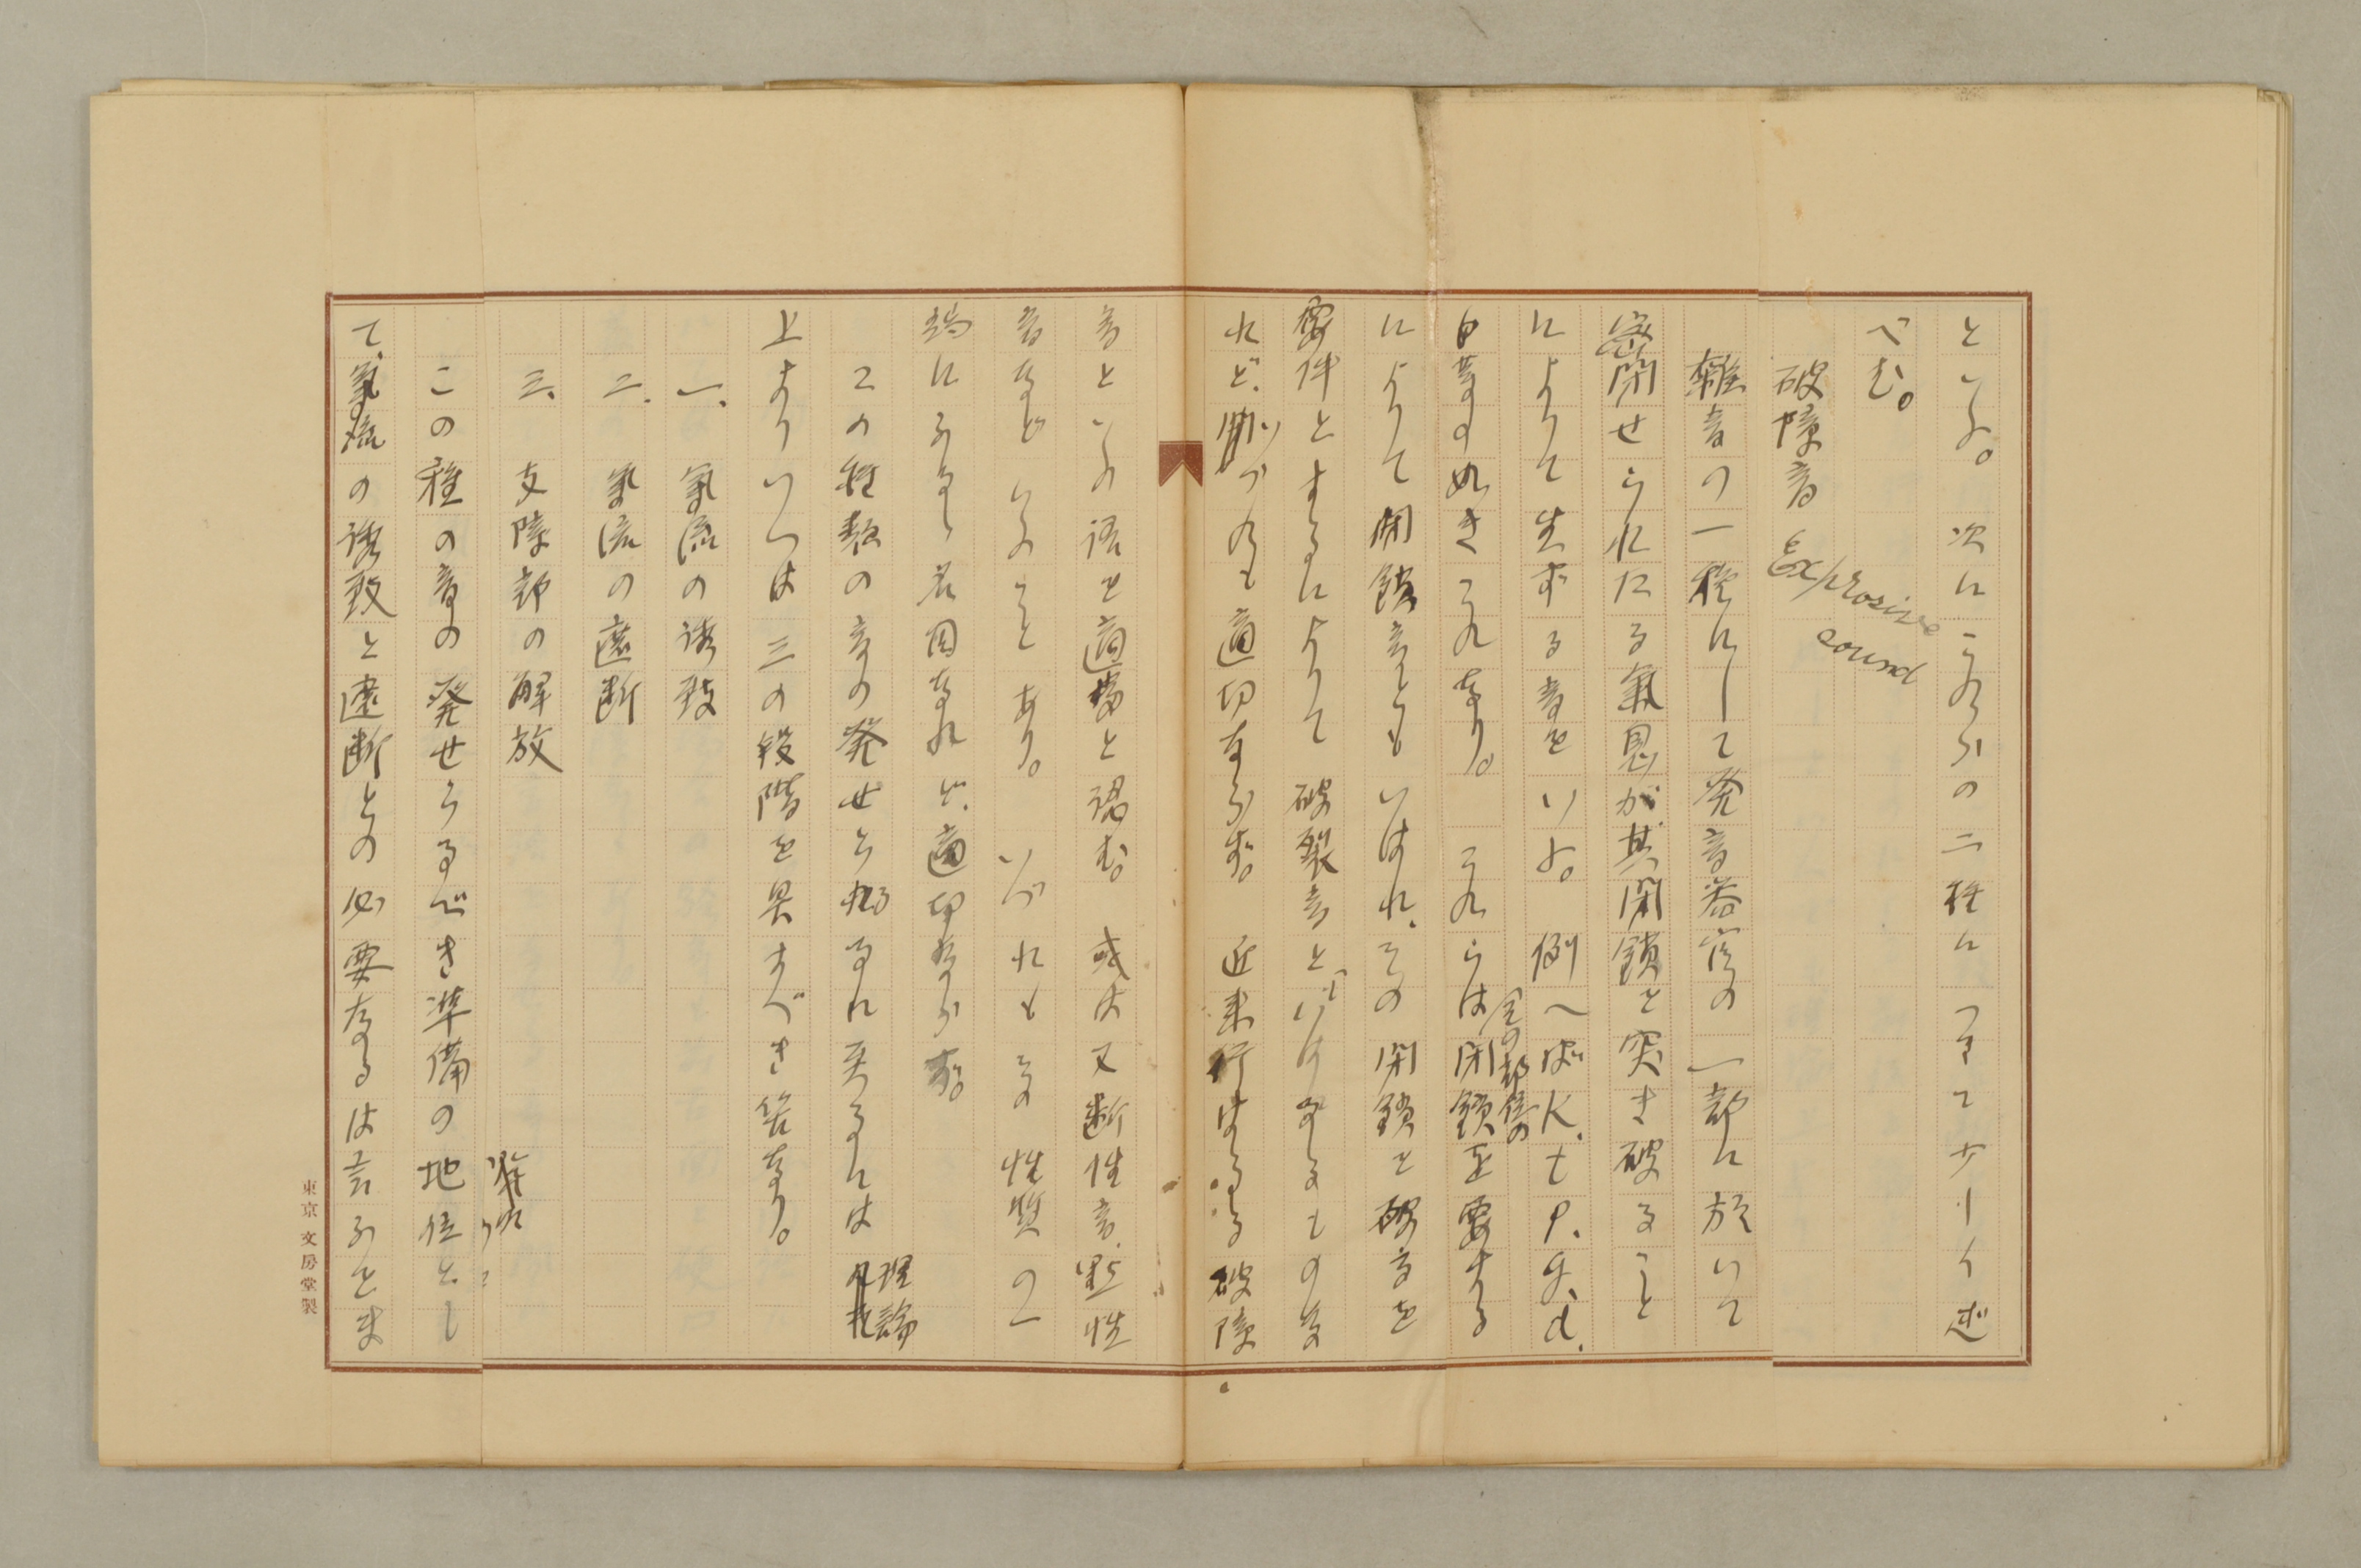 といふ。次にこれらの二種につきて少しく述
べむ。
破障音 Explosive sound
雜音の一種にして発音器官の一部に於いて
密閉せられたる氣息が其閉鎖を突き破ること
によりて生ずる音をいふ。例へばK. t P. g, d.
b 等の如きこれなり。これらは閉鎖を要する
によりて閉鎖音ともいはれ、その閉鎖を破るを
要件とするによりて破裂音といはるるもの
れど、いづれも適切ならず。近来行はるる破障
音といふ語を適当と認む。或は又断性音、點性
音などいふことあり。いづれもその性質の一
端による名目なれど、適切ならず。
この種類の音の発せらるるに至るには理論
上よりいへば三の段階を具すべき筈なり。
一、氣流の誘致
二、氣流の遮断
三、支障部の解放
この種の音の発せらるべき準備の地位とし
て、氣流の誘致と遮断との必要なるは言ふをま
東京 文房堂製